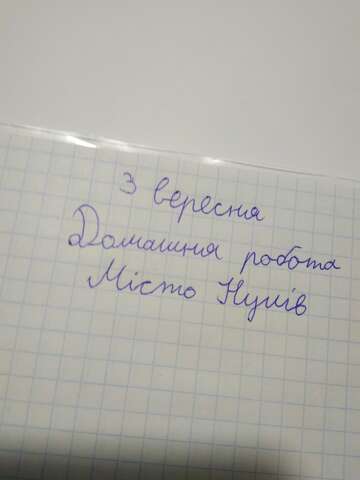 3 вересня
Домашня робота
Місто Нулів